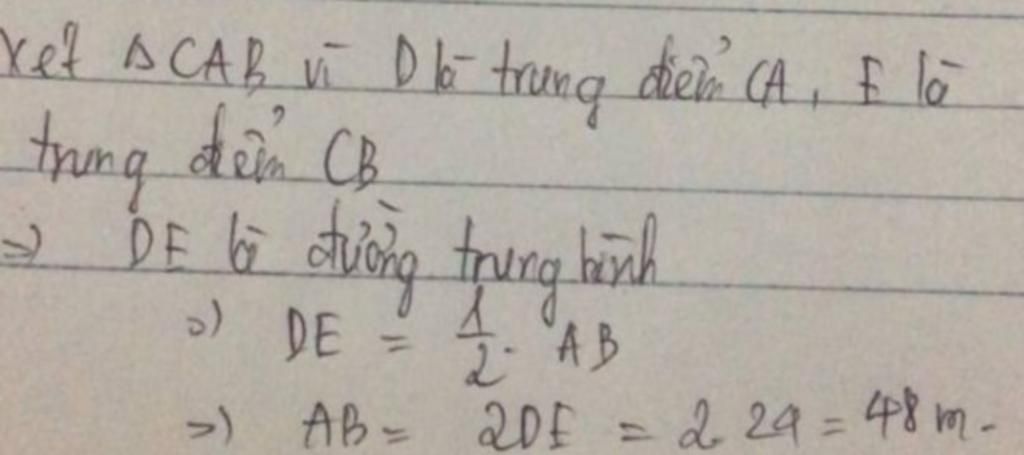 Xét ΔCAB vì D là trung điểm CA, E là
trung điểm CB
=> DE là đường trung bình
=> DE = 1/2. AB
=> AB = 2DE = 2. 24 = 48 m.